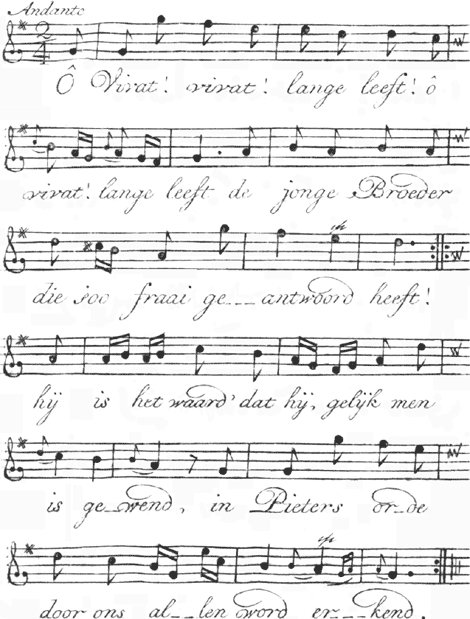 Andante
Ô Vivat! vivat! lange leeft! ô
vivat! lange leeft de jonge Broeder
die soo fraai ge___antwoord heeft!
hij is het waard' dat hij, gelijk men
is ge_wend, in Pieters or_de
door ons al__len word er___kend.